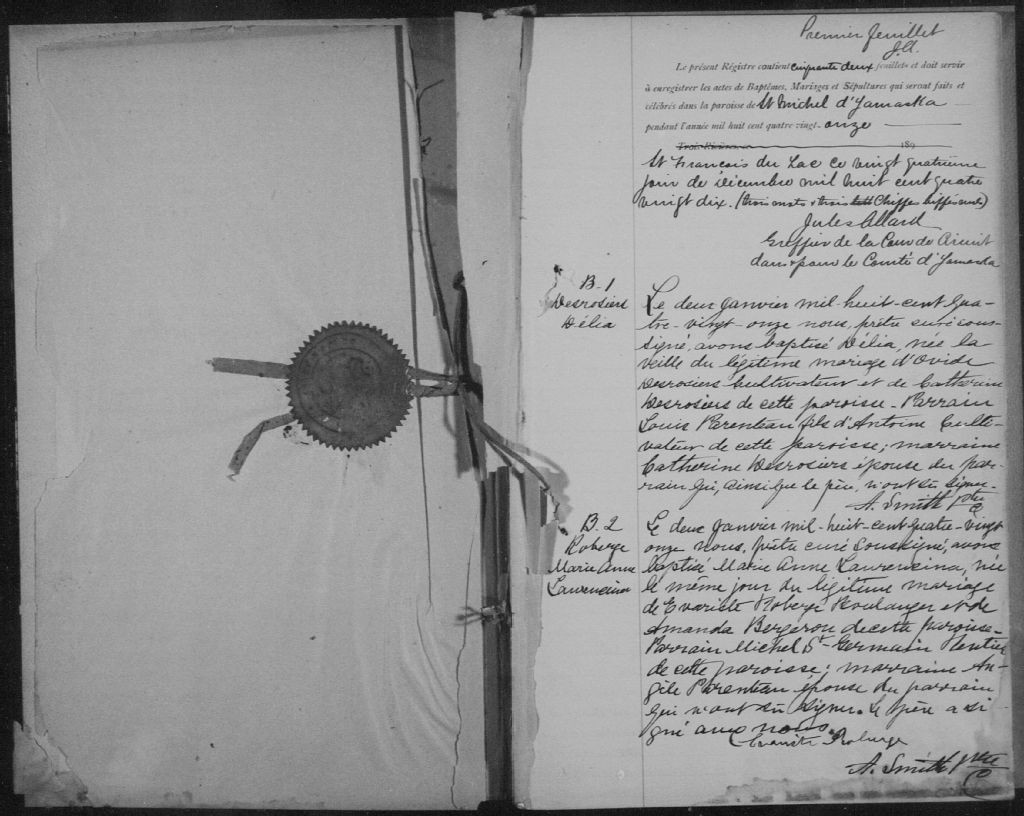 Premier feuillet
J.A.
Le présent Régistre contient cinquante deux feuillets et doit servir
à enregistrer les actes de Baptêmes, Mariages et Sépultures qui seront faits et
célébrés dans la paroisse de St Michel d'Yamaska
pendant l'année mil huit cent quatre-vingt- onze
Trois-Rivières 189
St François du Lac ce vingt quatrième
jour de Décembre mil huit cent quatre
vingt dix. (trois mots & trois chiffres biffés nuls)
Jules Allard
Greffier de la Cour de Circuit
dans & pour le Comté d'Yamaska
B-1
Desrosiers
Délia
Le deux janvier mil-huit-cent-qua-
tre-vingt-onze nous, prêtre curé sous-
signé, avons baptisé Délia, née la
veille du légitime mariage d'Ovide
Desrosiers Cultivateur et de Catherine
Desrosiers de cette paroisse - Parrain
Louis Parenteau fils d'Antoine Culti-
vateur de cette paroisse; marraine
Catherine Desrosiers épouse du par-
rain qui, ainsi que le père, n'ont su signer.
A. Smith Ptre
C
B-2
Roberge
Marie Anne
Laurencina
Le deux janvier mil-huit-cent-quatre-vingt
onze nous, prêtre curé soussigné, avons
baptisé Marie Anne Laurencina, née
le même jour du légitime mariage
de Evariste Roberge Boulanger et de
Amanda Bergeron de cette paroisse -
Parrain Michel St-Germain Rentier
de cette paroisse; marraine An-
gèle Parenteau épouse du parrain
qui n'ont su signer. Le père a si-
gné avec nous.
Evariste Roberge
A. Smith Ptre
C